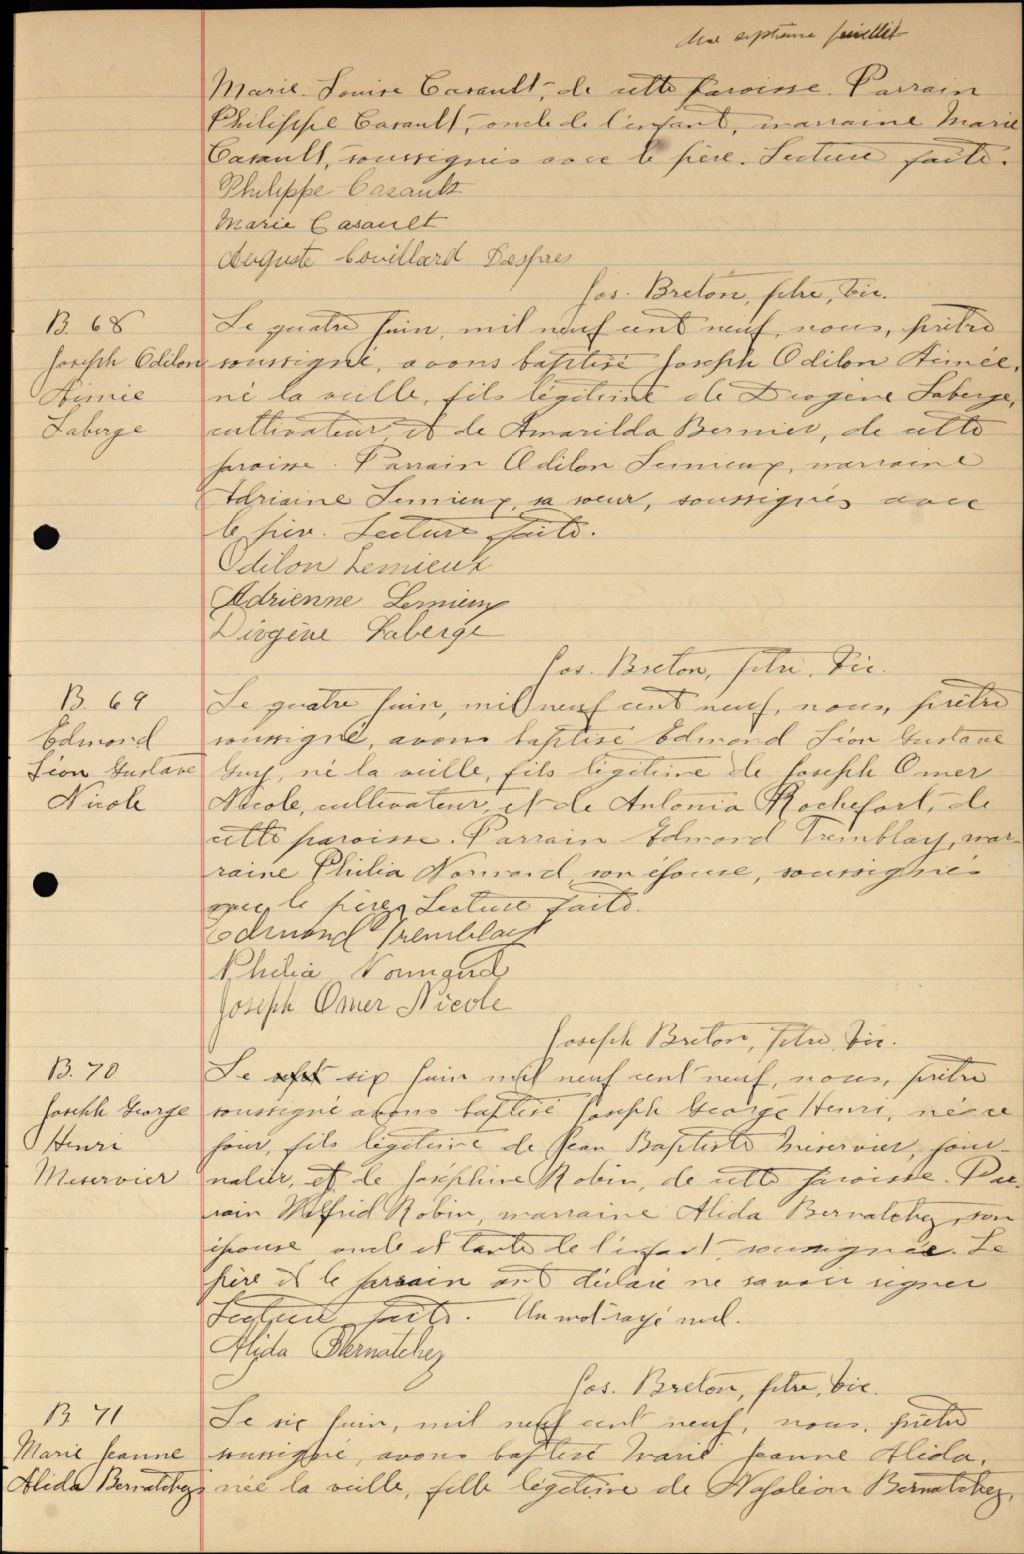 septième feuillet
Marie Louise Casault, de cette paroisse. Parrain
Philippe Casault, oncle de l'enfant, marraine Marie
Casault, soussignés avec le père. Lecture faite.
Philippe Casault
Marie Casault
Auguste Couillard Despres
Jos. Breton, ptre, vic.
B. 68
Joseph Odilon
Aimée
Laberge
Le quatre juin, mil neuf cent neuf, nous, prêtre
soussigné, avons baptisé Joseph Odilon Aimée,
né la veille, fils légitime de Diogène Laberge,
cultivateur et de Amarilda Bernier, de cette
paroisse. Parrain Odilon Lemieux, marraine
Adrienne Lemieux, sa soeur, soussignés avec
le père. Lecture faite.
Odilon Lemieux
Adrienne Lemieux
Diogène Laberge
Jos. Breton, ptre, vic.
B. 69
Edmond
Léon Gustave
Nicole
Le quatre juin, mil neuf cent neuf, nous, prêtre
soussigné, avons baptisé Edmond Léon Gustave
Guy, né la veille, fils légitime de Joseph Omer
Nicole, cultivateur, et de Antonia Rochefort, de
cette paroisse. Parrain Edmond Tremblay, mar-
raine Philia Normand, son épouse, soussignés
avec le père. Lecture faite.
Edmond Tremblay
Philia Normand
Joseph Omer Nicole
Joseph Breton, ptre, vic.
B. 70
Joseph George
Henri
Meservier
Le six juin mil neuf cent neuf, nous, prêtre
soussigné avons baptisé Joseph George Henri, né ce
jour, fils légitime de Jean Baptiste Meservier, jour-
nalier, et de Joséphine Robin, de cette paroisse. Par-
rain Wilfrid Robin, marraine Alida Bernatchez, son
épouse, oncle et tante de l'enfant, soussignée. Le
père et le parrain ont déclaré ne savoir signer
Lecture faite. Un mot rayé nul.
Alida Bernatchez
Jos. Breton, ptre, vic.
B 71
Marie Jeanne
Alida Bernatchez
Le six juin, mil neuf cent neuf, nous, prêtre
soussigné, avons baptisé Marie Jeanne Alida,
née la veille, fille légitime de Napoléon Bernatchez,